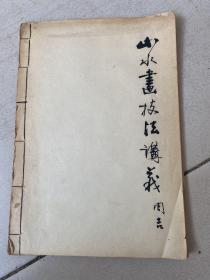 山水畫技法講義
周吉